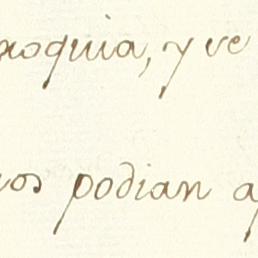 roquia, y ve
ros podian a